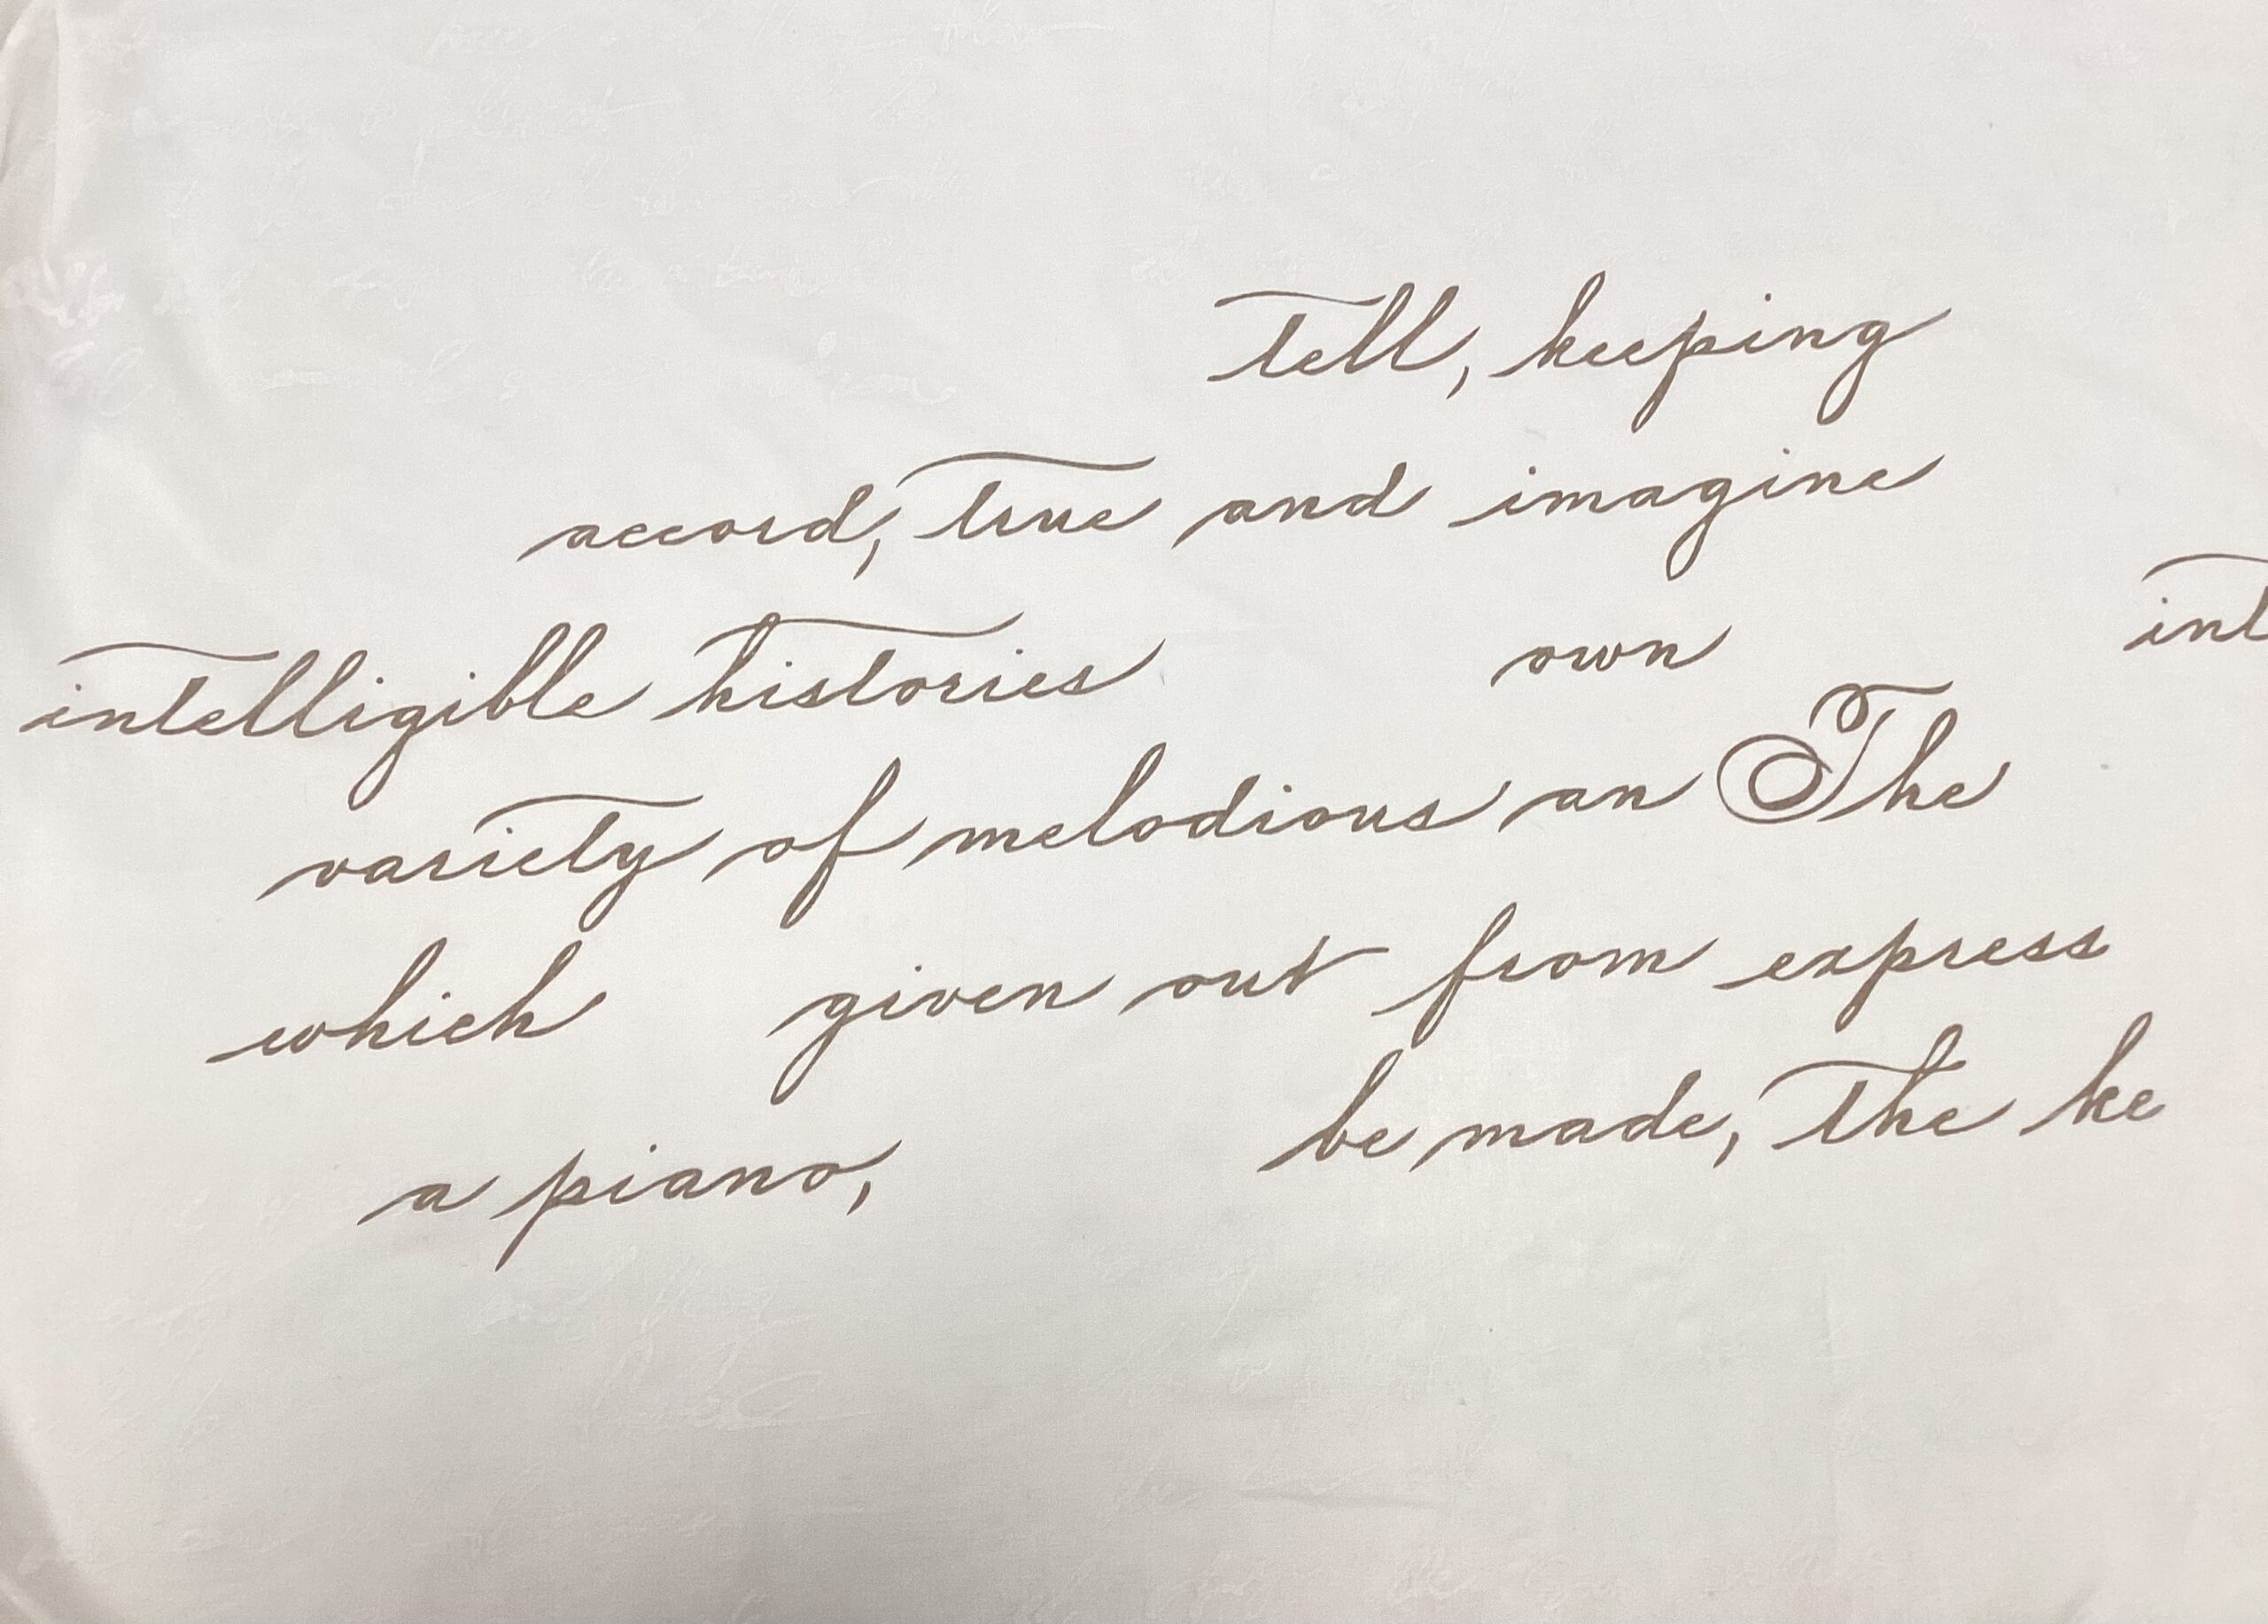 tell, keeping
accord, true and imagine
intelligible histories own int
variety of melodious an The
which given out from express
a piano, be made, the ke